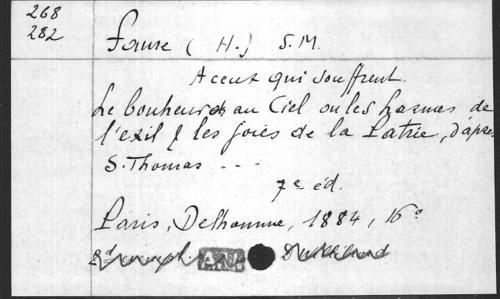 268
282
Faure (H.) S.M.
A ceux qui souffrent.
Le bonheur au Ciel ou les larmes de
l'exil & les joies de la Patrie, d'après
S. Thomas ...
7e éd.
Paris, Delhomme, 1884, 16°